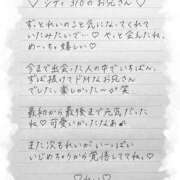 ♡シティ310のお兄さん♡
ずっとれいのこと気になってくれて
いたみたいで…♡ やっと会えたね。
めーっちゃ嬉しい♡
今まで出会った人の中でいちばん、
ずば抜けてドMなお兄さん
でした、楽しかったーが笑
最初から最後まで元気だった
ね♡可愛いがったなぁ♡
また次もれいが いーっぱい
いじめちゃうから覚悟しててね。♡
♡れい♡